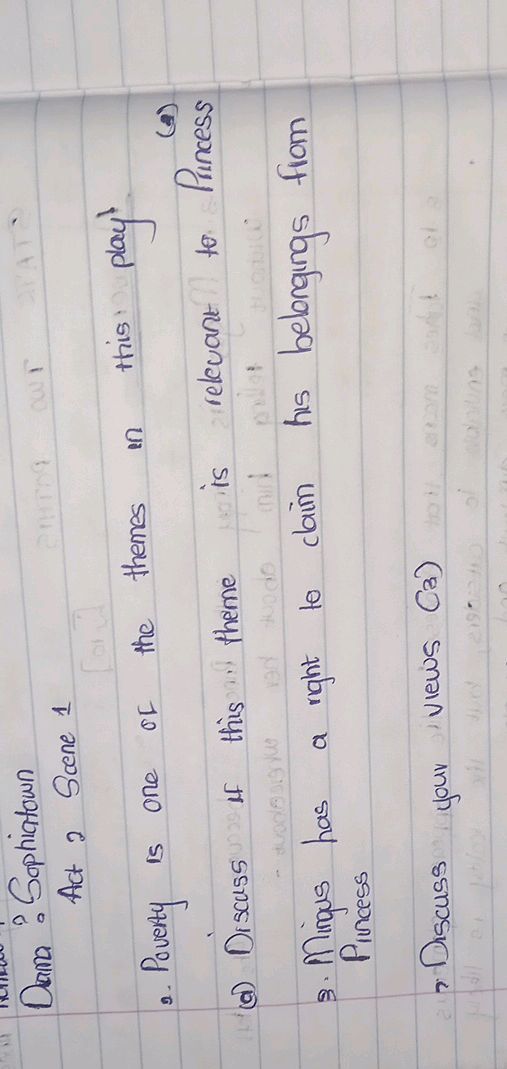 Drama : Sophiatown
Act 2 Scene 1
2. Poverty is one of the themes in this play
(a) Discuss if this theme is relevant to Princess (2)
3. Mingus has a right to claim his belongings from
Princess
Discuss your views (3)